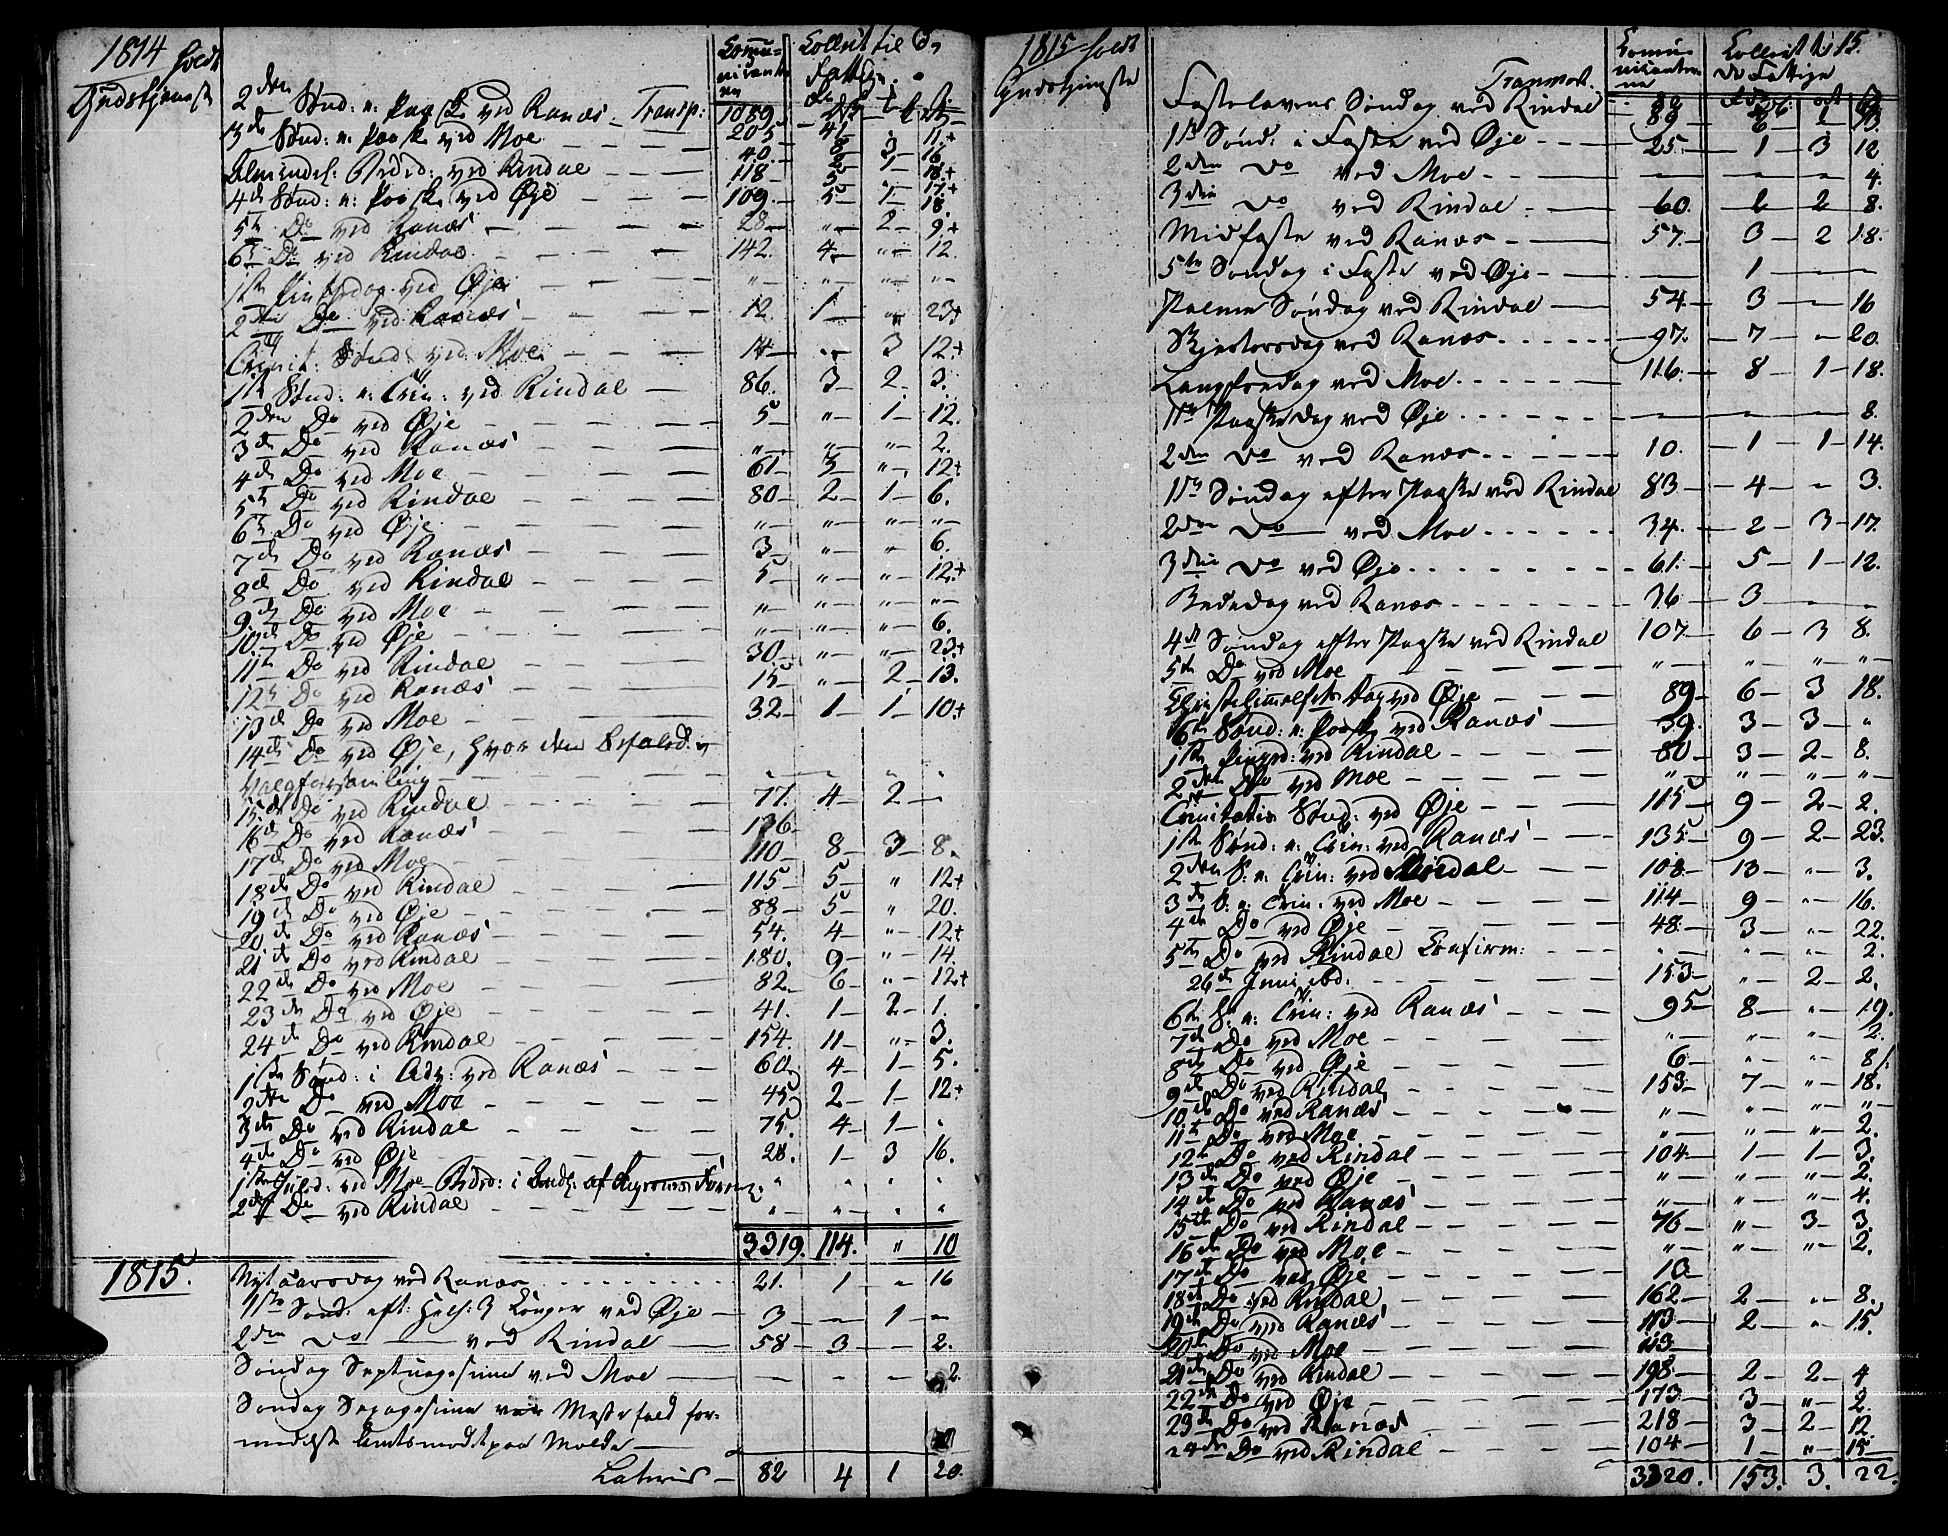 1814 holdt
Gudstjeneste
Comu-
nicante
rne
Collect til de
Fattige
2den Sønd: e: Paaske ved Ranæs - Transp: 1089
3de Sønd: e: Paaske ved Moe 205
Almindel: Bededag ved Rindal 40 3 16
4de Sønd: e: Paaske ved Øje 109 5 1 18
5te Do ved Ranæs 28 " 2 9+
6te Do ved Rindal 142. 4 " 12.
1ste Pintsedag ved Øje " " " "
2den Do ved Ranæs 12. 1 " 23+
Trinit: Sønd: ved Moe 14 " 3 12+
1ste Sønd: e: Trin: ved Rindal 86. 3 2 3.
2den Do ved Øje 5 " 1 12.
3de Do ved Ranæs " " " 2.
4de Do ved Moe 61 3 " 12+
5te Do ved Rindal 80 2 1 6.
6te Do ved Øje " " " "
7de Do ved Ranæs 3 " " 6.
8de Do ved Rindal 5 " " 12.+
9de Do ved Moe " " " "
10de Do ved Øje " " " 6.
11te Do ved Rindal 30 " " 23+
12te Do ved Ranæs 15 " 2 13.
13de Do ved Moe 32 1 1 10+
14de Do ved Øje, hvor den befalede
Valgforsamling
15de Do ved Rindal 77. 4 2 "
16de Do ved Ranæs 136
17de Do ved Moe 110 8 3 8.
18de Do ved Rindal 115 5 " 12+
19de Do ved Øje 88 5 " 20.
20de Do ved Ranæs 54. 4 " 12+
21de Do ved Rindal 180. 9 " 14.
22de Do ved Moe 82 6 " 12+
23de Do ved Øje 41. 1 2 1.
24de Do ved Rindal 154. 11 " 3.
1ste Sønd: i Adv: ved Ranæs 60 4 1 5.
2den Do ved Moe 45 2 1 12+
3de Do ved Rindal 75. 4 1 "
4de Do ved Øje 28. 1 3 16.
1ste Juled: ved Moe " " " "
2den Do ved Rindal " " " "
3319. 114. " 10
1815.
Nytaarsdag ved Ranæs 21. 1 " 16
1ste Sønd: eft: Hell: 3 Konger ved Øje 3 1
2den Do ved Rindal 58 3 2.
Søndag Septuagesima ved Moe 2
Søndag Sexagesima var Messefald for-
medelst Amtsmødet paa Molde
Lateris 82 4 1 20.
1815 holdt
Gudstjeneste
Comu-
nicanter
ne
Collect til
de Fattige
15.
Transport.
Fastelavens Søndag ved Rindal 89 6
1ste Sønd: i Faste ved Øje 25 1 3 12
2den Do ved Moe 4.
3die Do ved Rindal 60. 2 8.
Midfaste ved Ranæs 57. 3 2 18.
5te Søndag i Faste ved Øje 1
Palme Søndag ved Rindal 54 3 16
Skjertorsdag ved Ranæs 97. 7 20.
Langfredag ved Moe 116. 8 1 18.
1ste Paaskedag ved Øje 8.
2den Do ved Ranæs 10. 1 1 14.
1ste Søndag efter Paaske ved Rindal 83 4 " 3.
2den Do ved Moe 34. 2 3 17.
3die Do ved Øje 61. 5 1 12.
Bededag ved Ranæs 36 3
4de Søndag efter Paaske ved Rindal 107 6 3 8.
5te Do ved Moe " " " "
Christi Himmelfarts dag ved Øje 89 6 3 18.
6te Sønd: e: Paaske ved Ranæs 39. 3 3 "
1ste Pinsed: ved Rindal 80 3 2 8.
2den Do ved Moe " " " "
Trinitatis Sønd: ved Øje 115 9 2 2.
1ste Sønd: e: Trin: ved Ranæs 135 9 2 23.
2den S: e: Trin: ved Rindal 108 13 " 3.
3de S: e: Trin: ved Moe 114 9 " 16.
4de Do ved Øje 48. 3 " 22.
5te Do ved Rindal Confirm: " " " 2.
26de Junii ibd: 153 " 2 2.
6te S: e: Trin: ved Ranæs 95 8 " 19.
7de Do ved Moe " " " 2.
8de Do ved Øje 6 " " 8
9de Do ved Rindal 153 7 " 18.
10de Do ved Ranæs " " " "
11te Do ved Moe " " " 2.
12te Do ved Rindal 104 1 1 3.
13de Do ved Øje " " " 2.
14de Do ved Ranæs " " " 4.
15de Do ved Rindal 76 " 3 3.
16de Do ved Moe " " " 2.
17de Do ved Øje 10
18de Do ved Rindal 162 2 " 8.
19de Do ved Ranæs 113 2 " 15.
20de Do ved Moe 113
21de Do ved Rindal 198 2 2 4
22de Do ved Øje 173 3 " 2.
23de Do ved Ranæs 218 3 2 12.
24de Do ved Rindal 104 1 " 15
3320. 153. 3. 22.